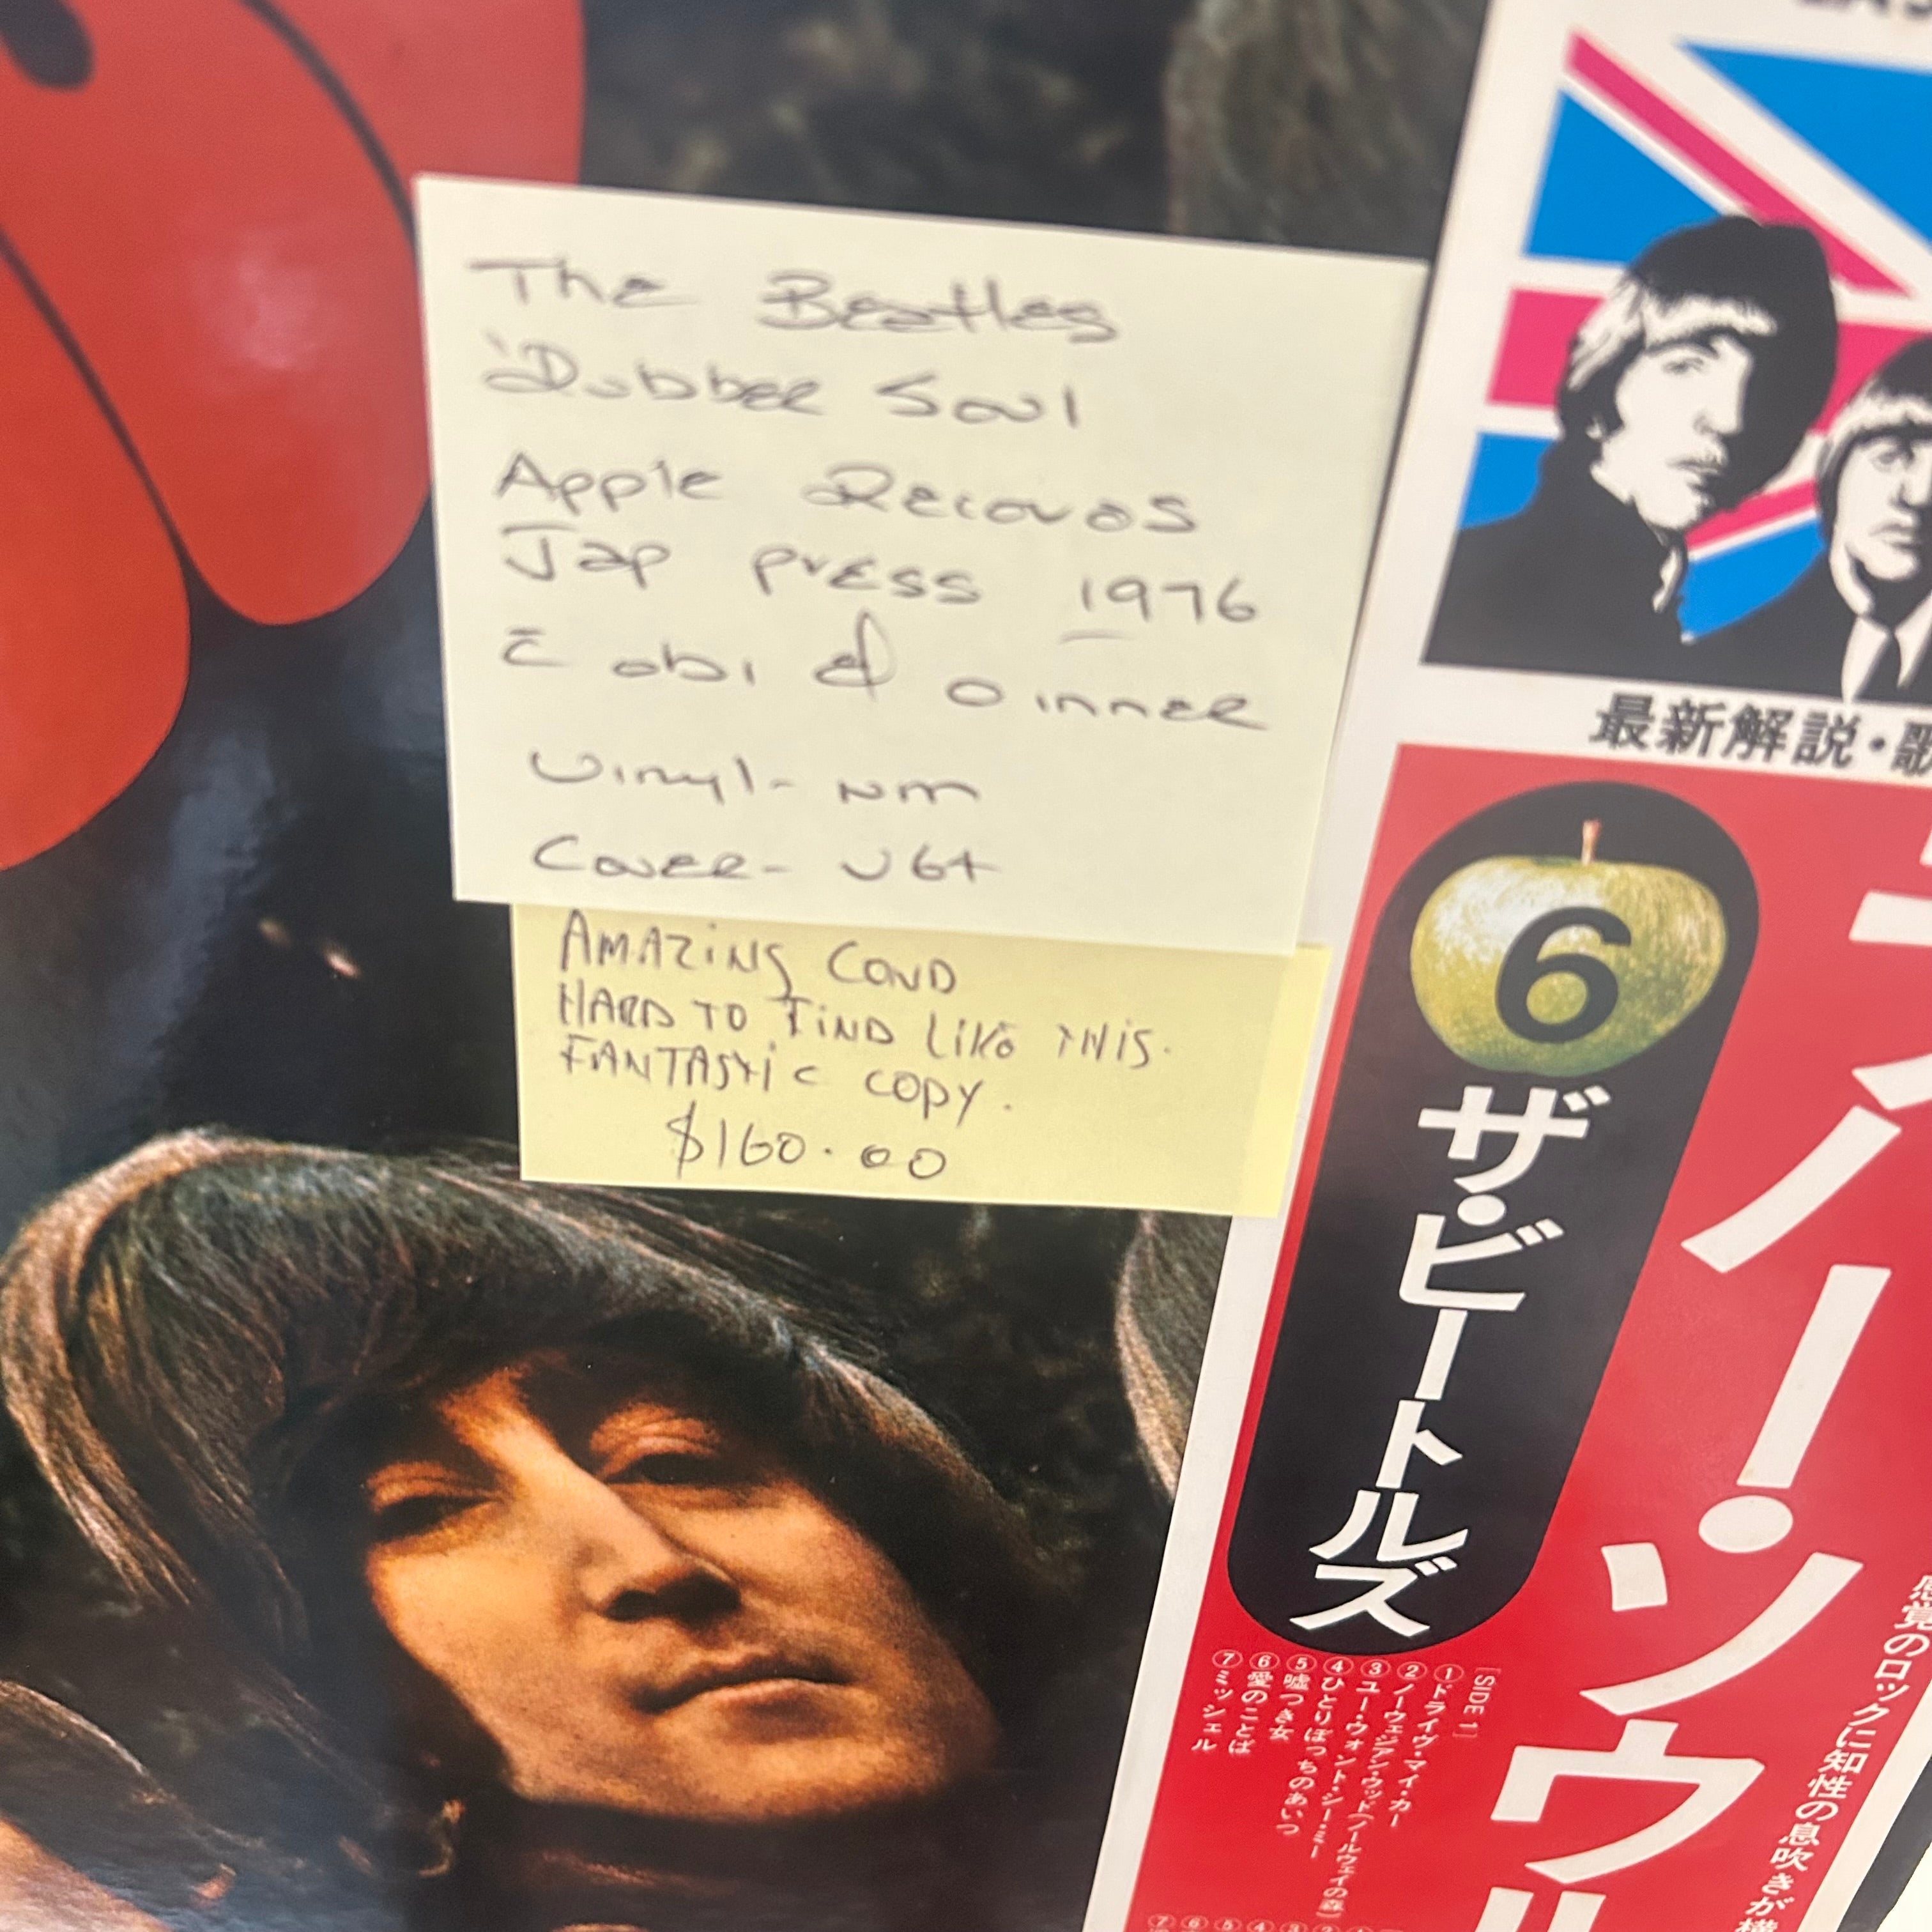 The Beatles
Rubber Soul
Apple Records
Jap press 1976
c̄ obi & O inner
Vinyl - NM
Cover - VG+
AMAZING COND
HARD TO FIND LIKE THIS.
FANTASTIC COPY.
$160.00
最新解説・歌
6
ザ・ビートルズ
ラバー・ソウル
[SIDE 1]
①ドライヴ・マイ・カー
②ノーウェジアン・ウッド(ノールウェイの森)
③ユー・ウォント・シー・ミー
④ひとりぼっちのあいつ
⑤嘘つき女
⑥愛のことば
⑦ミッシェル
感覚のロックに知性の息吹きが